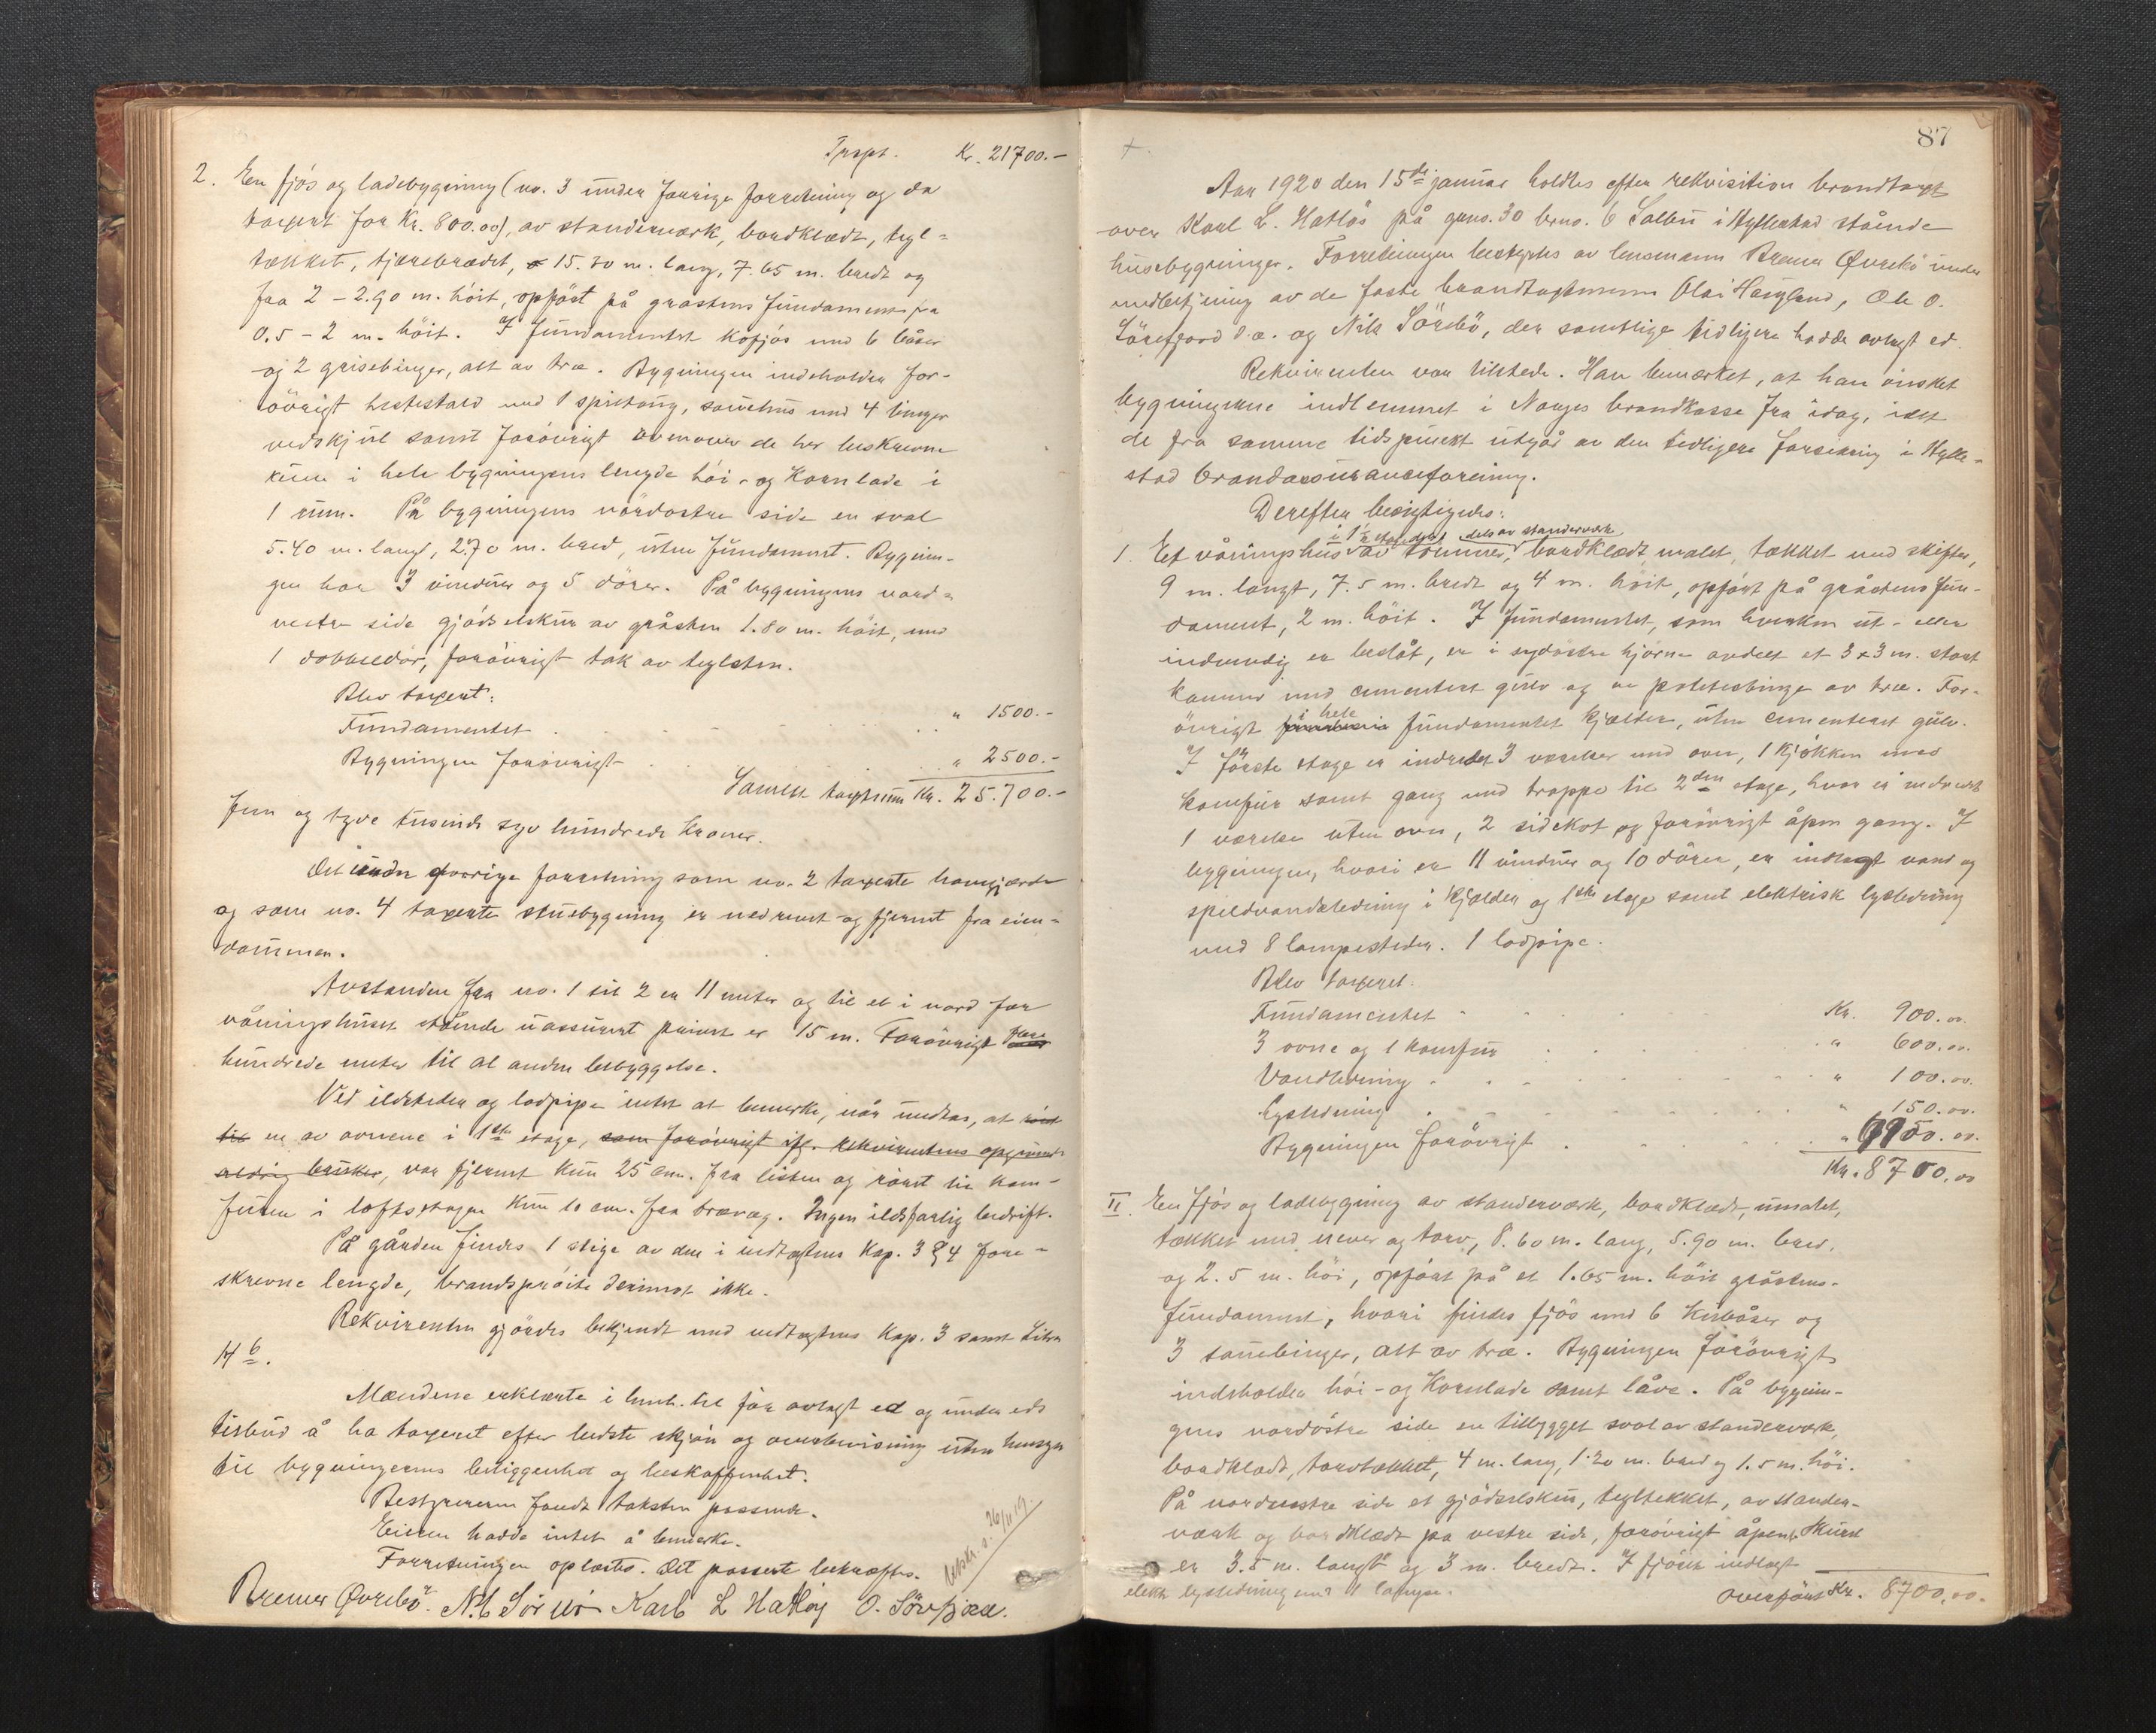 Trspt. Kr. 21700.-
2. Een fjös og ladebygning (no. 3 under forrige forretning og da
taxert for Kr. 800.00), av standerværk, bordklædt, tegl-
tækket, tjærebrædt, 15.30 m. lang, 7.65 m. bredt og
fra 2 - 2.90 m. höit, opföst på grastens fundament fra
0.5 - 2 m. höit. I fundamentet kofjös med 6 båser
og 2 grisebinger, alt av træ. Bygningen indeholder for-
övrigt hestestald med 1 spiltaug, sauehus med 4 binger
vedskjul samt forövrigt ovenover de her beskrevne
rum i hele bygningens lengde höi- og kornlade i
1 rum. På bygningens nordostre side en sval
5.40 m. lang, 2.70 m. bred, uten fundament. Bygnin-
gen har 3 vinduer og 5 dörer. På bygningens nord-
vestre side gjödselskur av gråsten 1.80 m. höit, med
1 dobbeldör, forövrigt tak av teglsten.
Blev taxert:
Fundamentet " 1500.-
Bygningen forövrigt " 2500.-
Samlet taxtsum Kr. 25.700.-
Fem og tyve tusinde syv hundrede Kroner.
Det under forrige forretning som no. 2 taxerte
og som no. 4 taxerte stuebygning er nedrevet og fjernet fra eien-
dommen.
Avstanden fra no. 1 til 2 er 11 meter og til et i nord for
våningshuset stående uassurert er 15 m. Forövrigt flere
hundrede meter til al anden bebyggelse.
Ved ildsteder og lodpipe intet at bemerke, når undtas, at
en av ovnene i 1ste etage, som forövrigt ifg. rekvirentens opgivende
aldrig brukes, var fjernet kun 25 cm. fra listen og röret til kom-
furen i loftsetagen kun 10 cm. fra trævæg. Ingen ildsfarlig bedrift.
På gården findes 1 stige av den i vedtægtens Kap. 3 § 4 fore-
skrevne lengde, brandspröite derimot ikke.
Rekvirenten gjördes bekjendt med vedtægtens Kap. 3 samt Litra
14 b.
Mændene erklærte i henh. til för avlagt ed og under eds
tilbud å ha taxeret efter bedste skjön og overbevisning uten hensyn
til bygningernes beliggenhet og beskaffenhet.
Bestyreren fandt taksten passende.
Eieren hadde intet å bemerke.
Forretningen oplæstes. Det passerte bekræftes.
Bremer Øvrebö. N. L Sörebö Karl L Hatlöy O.
26/11 19.
87
Aar 1920 den 15de januar holdtes efter rekvisition brandtaxt
over Karl L. Hatlös på gnno. 30 brno. 6 Salbu i Hyllestad stående
husebygninger. Forretningen bestyrtes av lensmann Bremer Øvrebö under
medbetjening av de faste brandtaxtmenn Olai Haugland, Ole O.
Sörefjord d.æ. og Nils Sörebö, der samtlige tidligere hadde avlagt ed.
Rekvirenten var tilstede. Han bemærket, at han önsket
bygningerne indlemmet i Norges brandkasse fra idag, idet
de fra samme tidspunkt utgår av den tidligere forsikring i Hylle-
stad brandassuranceforening.
Derefter besigtigedes:
i 1ste etage delvis dels av standerværk
1. Et våningshus av tömmer, bordklædt malet, tækket med skifter,
9 m. langt, 7.5 m. bredt og 4 m. höit, opfört på gråstens fun-
dament, 2 m. höit. I fundamentet, som hverken ut- eller
indvendig er beslåt, er i sydöstre hjörne avdelt et 3 x 3 m. stort
kammer med cementert gulv og en potetesbinge av træ. For-
övrigt i hele fundamentet kjælder, uten cementeret gulv.
I förste etage er indredet 3 værelser med ovn, 1 kjökken med
komfur samt gang med trappe til 2den etage, hvor er indredet
1 værelse uten ovn, 2 sidekot og forövrigt åpen gang. I
bygningen, hvori er 11 vinduer og 10 dörer, er indlagt vand og
spildvandsledning i kjælder og 1ste etage samt elektrisk lysledning
med 8 lampesteder. 1 lodpipe.
Blev taxeret:
Fundamentet Kr. 900.00.
3 ovne og 1 komfur " 600.00.
Vandledning " 100.00.
Lysledning " 150.00.
Bygningen forövrigt " 6950.00.
Kr. 8700.00
II. En fjös og ladebygning av standerværk, bordklædt, umalet,
tækket med never og torv, 8.60 m. lang, 5.90 m. bred,
og 2.5 m. höi, opfört på et 1.65 m. höit gråstens-
fundament, hvori findes fjös med 6 kubåser og
3 sauebinger, alt av træ. Bygningen forövrigt
indeholder höi- og kornlade samt låve. På bygnin-
gens nordöstre side en tilbygget sval av standerværk,
bordklædt, torvtækket, 4 m. lang, 1.20 m. bred og 1.5 m. höi.
På nordvestre side et gjödselskur, tegltekket, av stander-
værk og bordklædt på vestre side, forövrigt åpent. Skuret
er 3.5 m. langt og 3 m. bredt. I fjöset indlagt
elektr. lysledning med 1 lampe. overfört Kr. 8700.00.